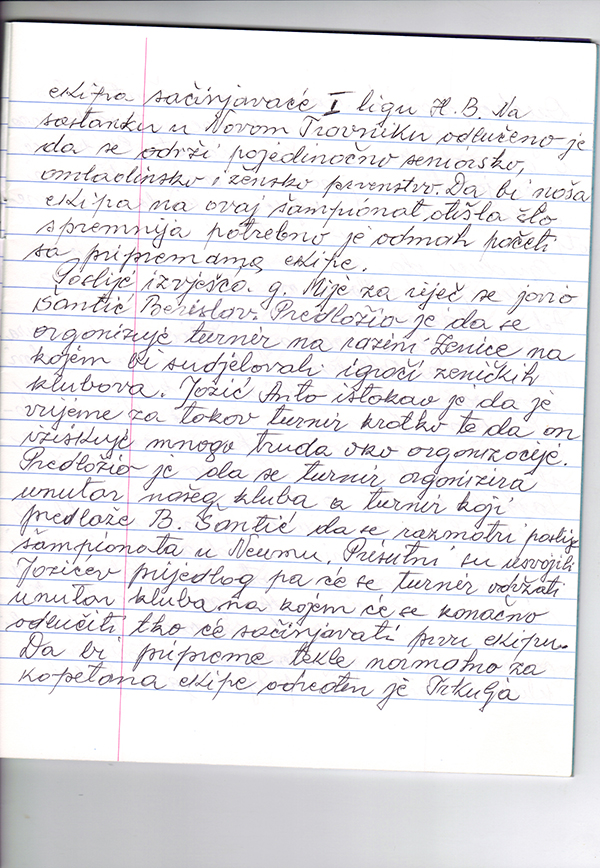 ekipa sačinjavaće I ligu H.B. Na
sastanku u Novom Travniku odlučeno je
da se održi pojedinačno seniorsko,
omladinsko i žensko prvenstvo. Da bi naša
ekipa na ovaj šampionat otišla što
spremnija potrebno je odmah početi
sa pripremama ekipe.
Poslije izvješća g. Mije za riječ se javio
Šantić Berislav. Predložio je da se
organizuje turnir na razini Zenice na
kojem bi sudjelovali igrači zeničkih
klubova. Jozić Anto istakao je da je
vrijeme za takav turnir kratko te da on
iziskuje mnogo truda oko organizacije.
Predložio je da se turnir organizira
unutar našeg kluba a turnir koji
predlaže B. Šantić da se razmotri poslije
šampionata u Neumu. Prisutni su usvojili
Jozićev prijedlog pa će se turnir održati
unutar kluba na kojem će se konačno
odlučiti tko će sačinjavati prvu ekipu.
Da bi pripreme tekle normalno za
kapetana ekipe određen je Trkulja